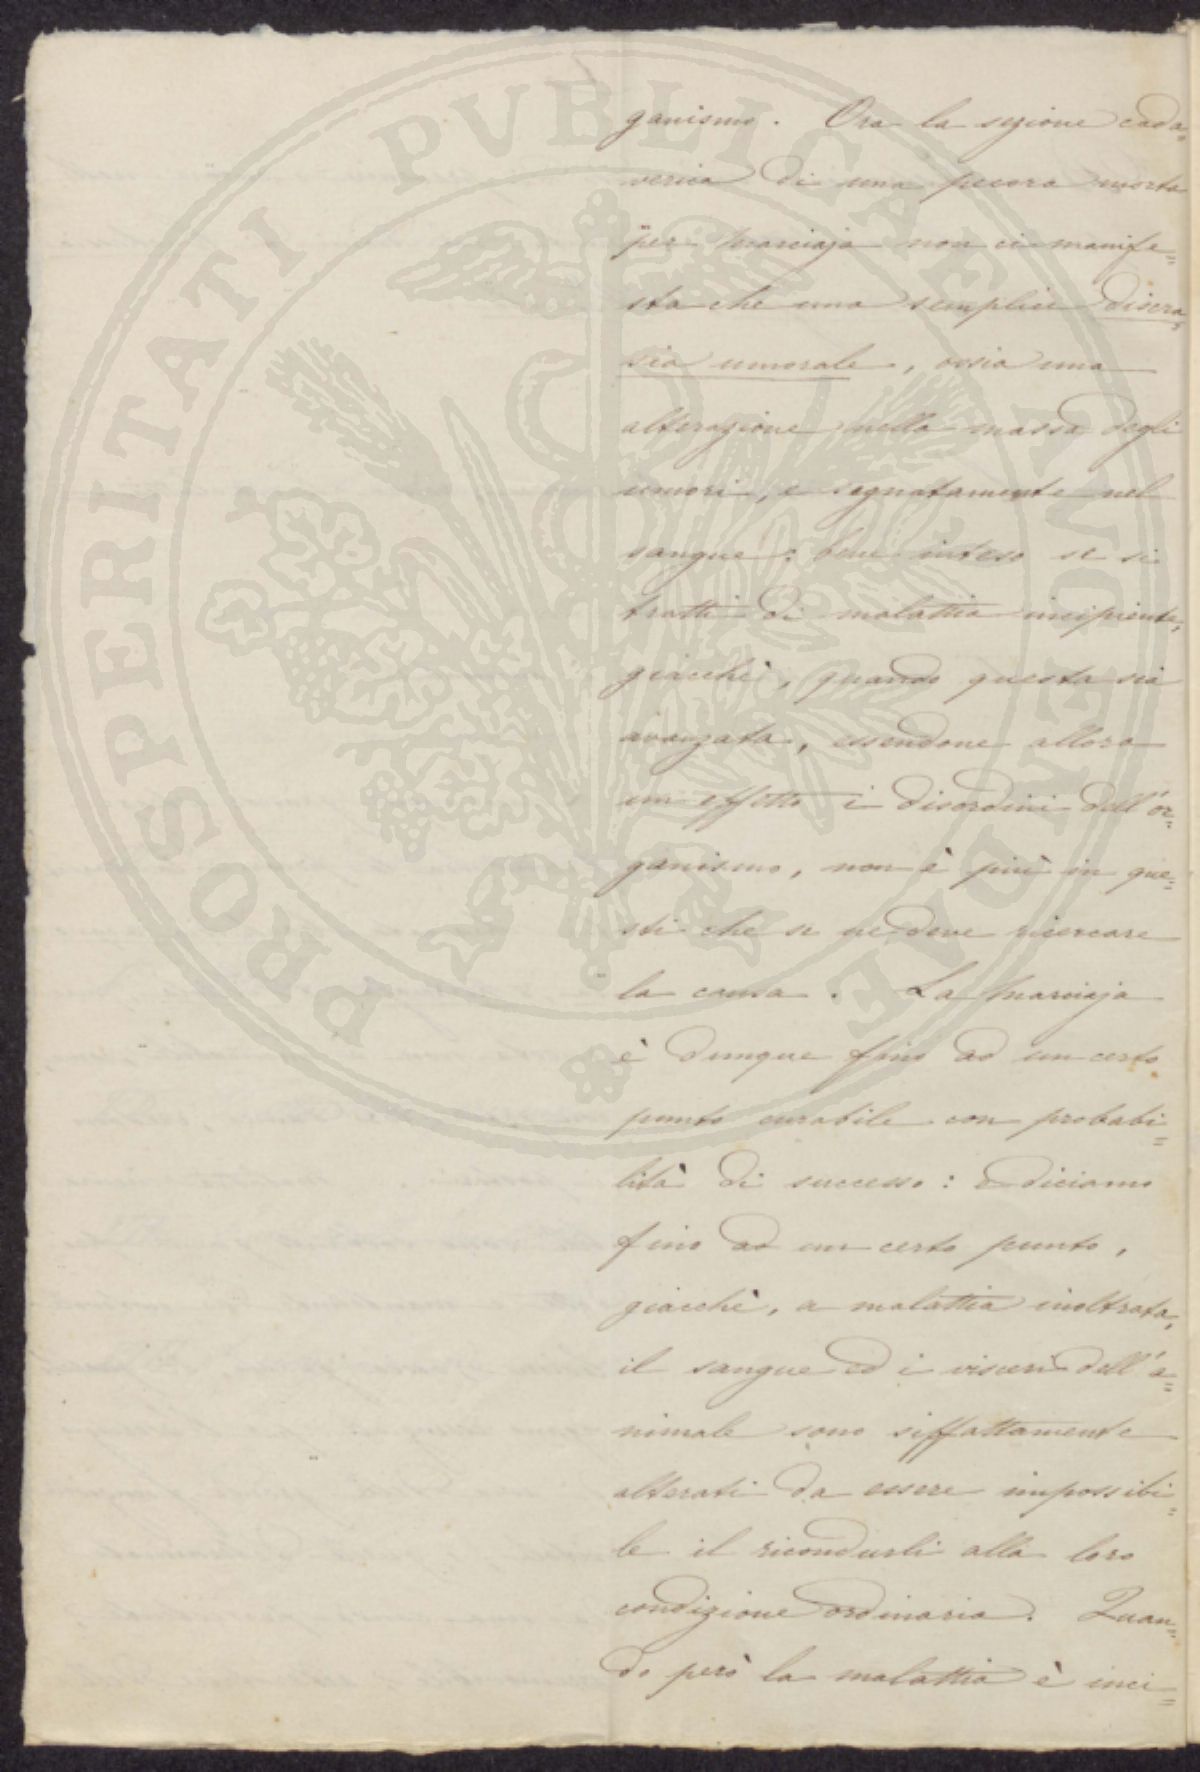 ganismo. Ora la sezione cada=
verica di una pecora morta
per Marciaja non ci manife=
sta che una semplice discra=
sia umorale, ossia una
alterazione nella massa degli
umori, e segnatamente nel
sangue; bene inteso se si
tratti di malattia incipiente,
giacchè, quando questa sia
avanzata, essendone allora
un effetto i disordini dell'or=
ganismo, non è più in que=
sti che se ne deve ricercare
la causa. La Marciaja
è dunque fino ad un certo
punto curabile con probabi=
lità di successo: e diciamo
fino ad un certo punto,
giacchè, a malattia inoltrata,
il sangue ed i visceri dell'a=
nimale sono siffattamente
alterati da essere impossibi=
le il ricondurli alla loro
condizione ordinaria. Quan=
do però la malattia è inci=
PROSPERITATI PVBLICAE AVGENDAE